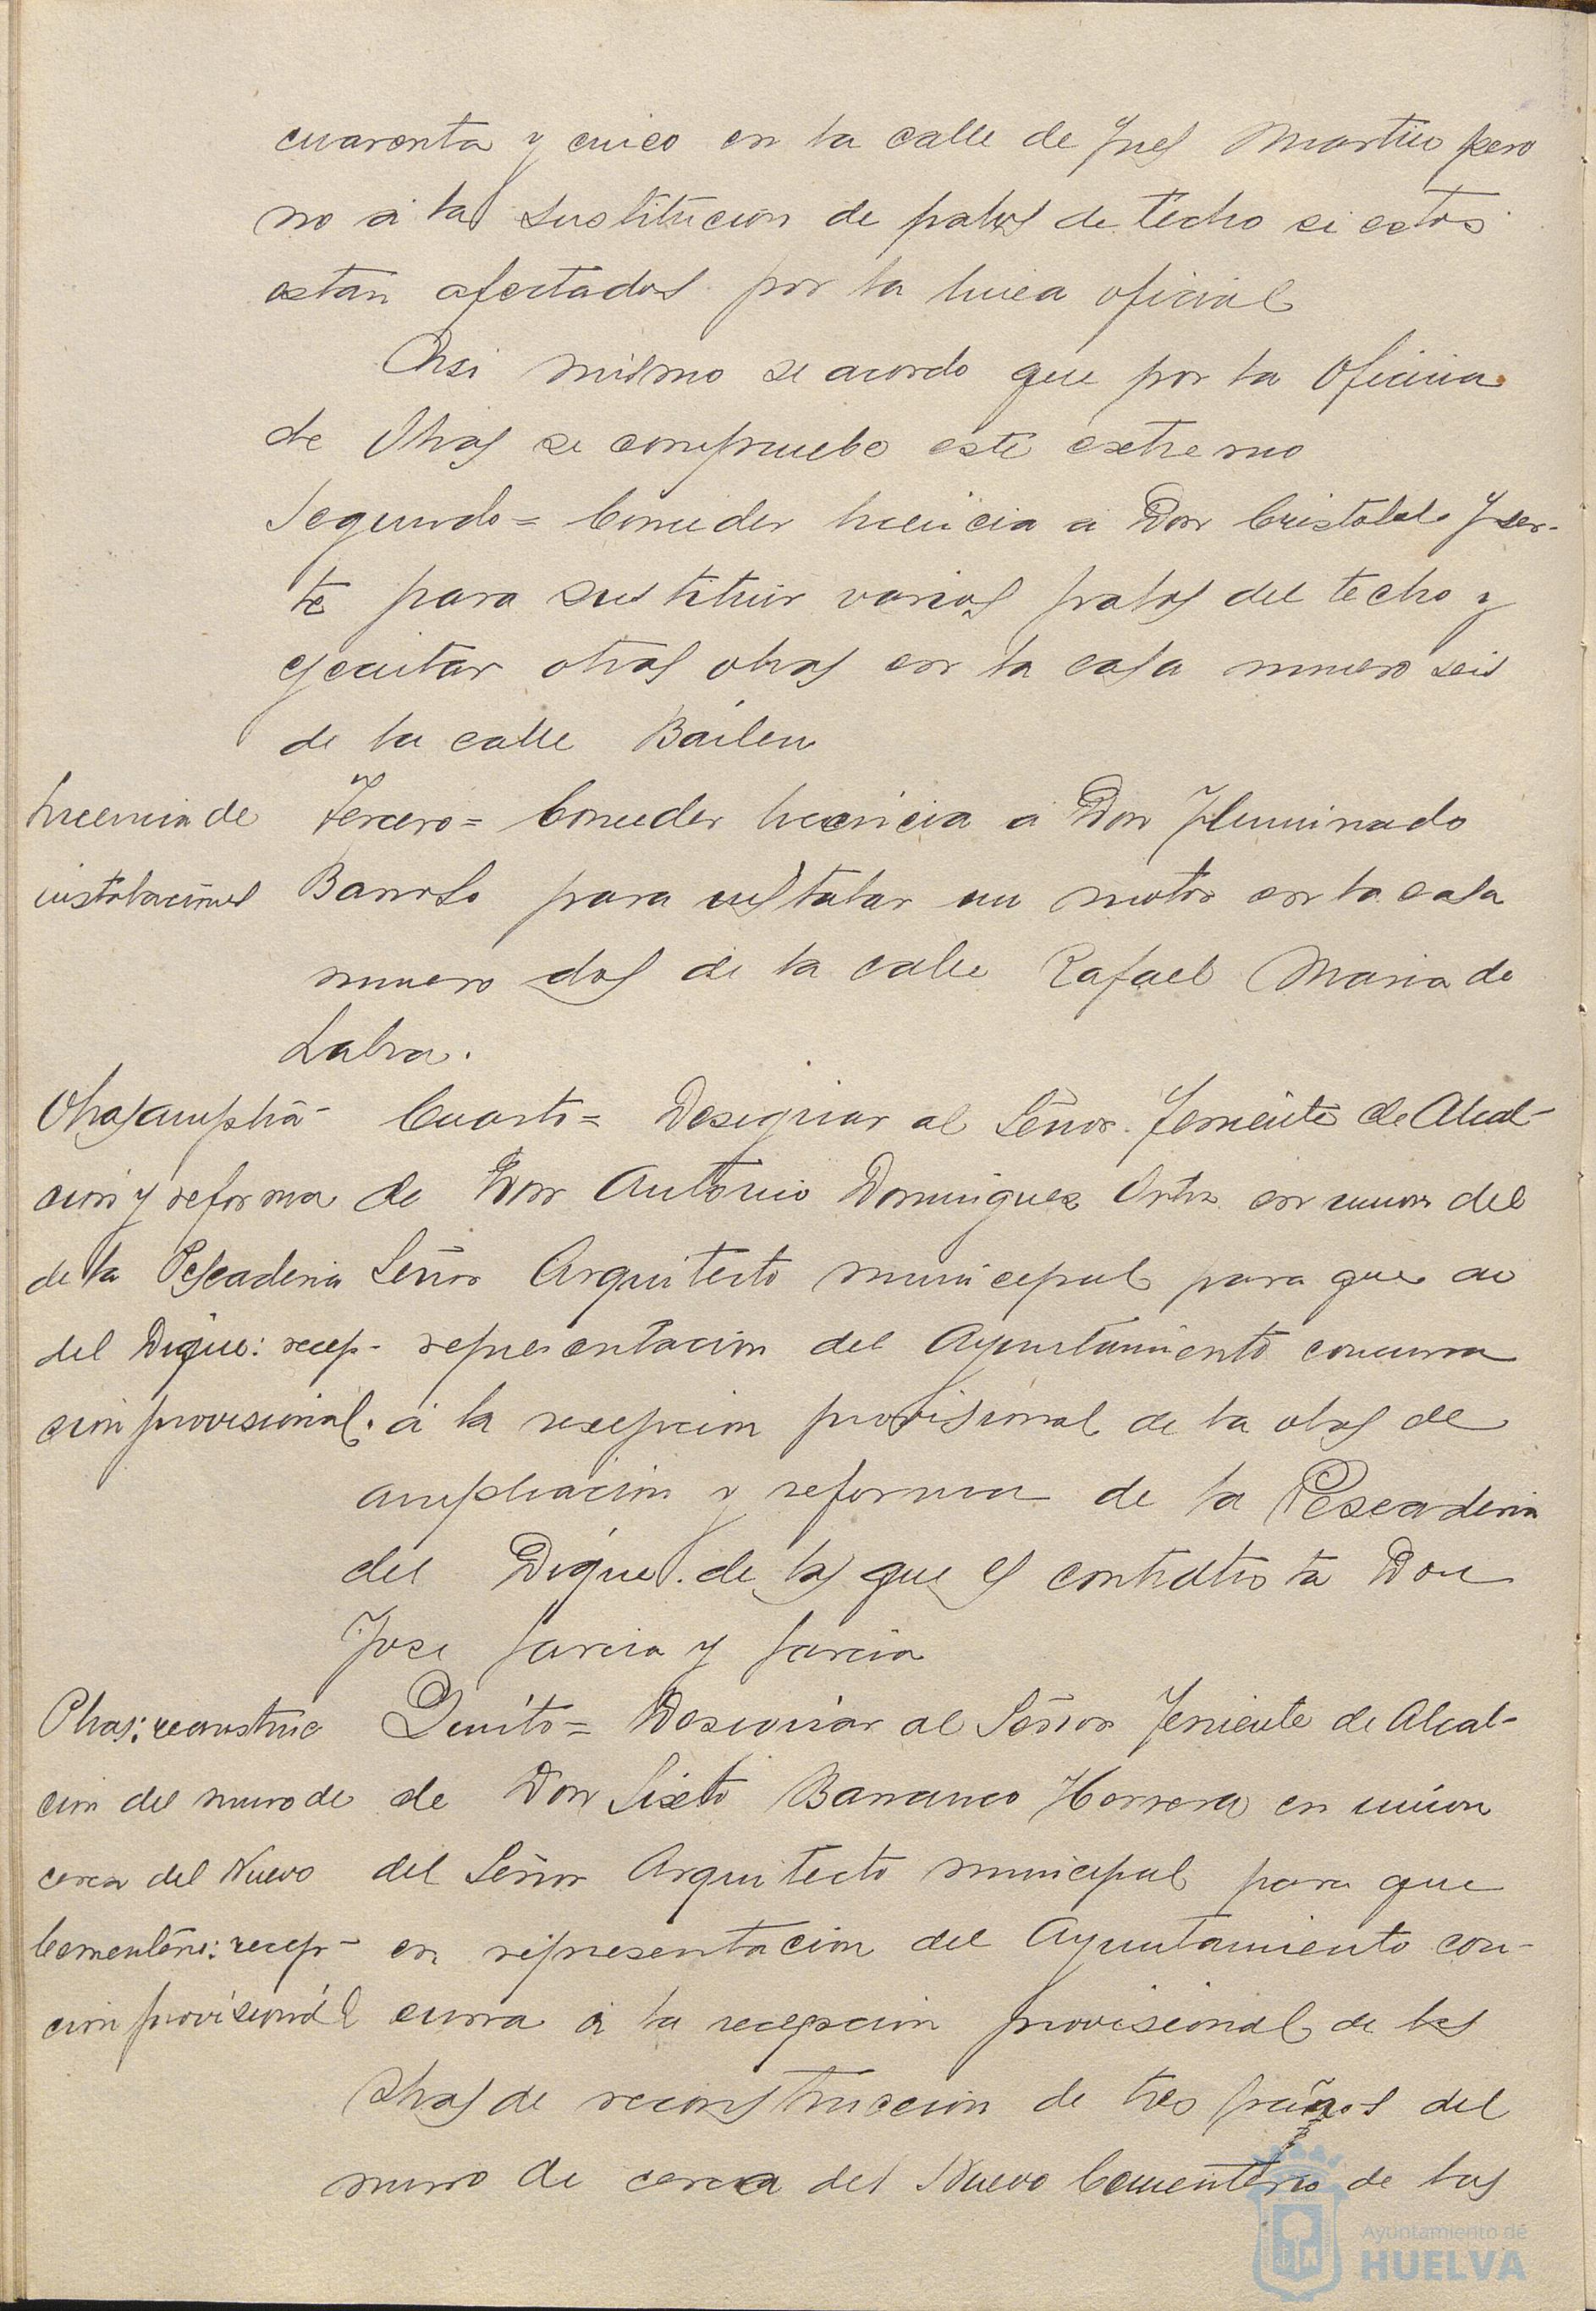 cuarenta y cinco en la calle de Ines Martin pero
no á la sustitucion de palos de techo si estos
estan afectados por la linea oficial
Asi mismo se acordo que por la Oficina
de Obras se compruebe este extremo
Segundo= Conceder licencia a Don Cristobal Yser-
te para sustituir varios palos del techo y
ejecutar otras obras en la casa numero seis
de la calle Bailen
Licencia de
instalaciones
Tercero= Conceder licencia a Don Iluminado
Barroso para instalar un motor en la casa
numero dos de la calle Rafael Maria de
Labra.
Obras amplia-
cion y reforma
de la Pescaderia
del Dique: recep-
cion provisional.
Cuarto= Designar al Señor Teniente de Alcal-
de Don Antonio Dominguez Ortiz en union del
Señor Arquitecto municipal para que en
representacion del Ayuntamiento concurra
á la recepcion provisional de la obras de
ampliacion y reforma de la Pescaderia
del Dique de las que es contratista Don
Jose Garcia y Garcia
Obras: reconstruc
cion del muro de
cerca del Nuevo
Cementerio: recep-
cion provisional
Quinto= Designar al Señor Teniente de Alcal-
de Don Sixto Barranco Herrera en union
del Señor Arquitecto municipal para que
en representacion del Ayuntamiento con-
curra á la recepcion provisional de las
obras de reconstruccion de tres paños del
muro de cerca del Nuevo Cementerio de las
Ayuntamiento de
HUELVA